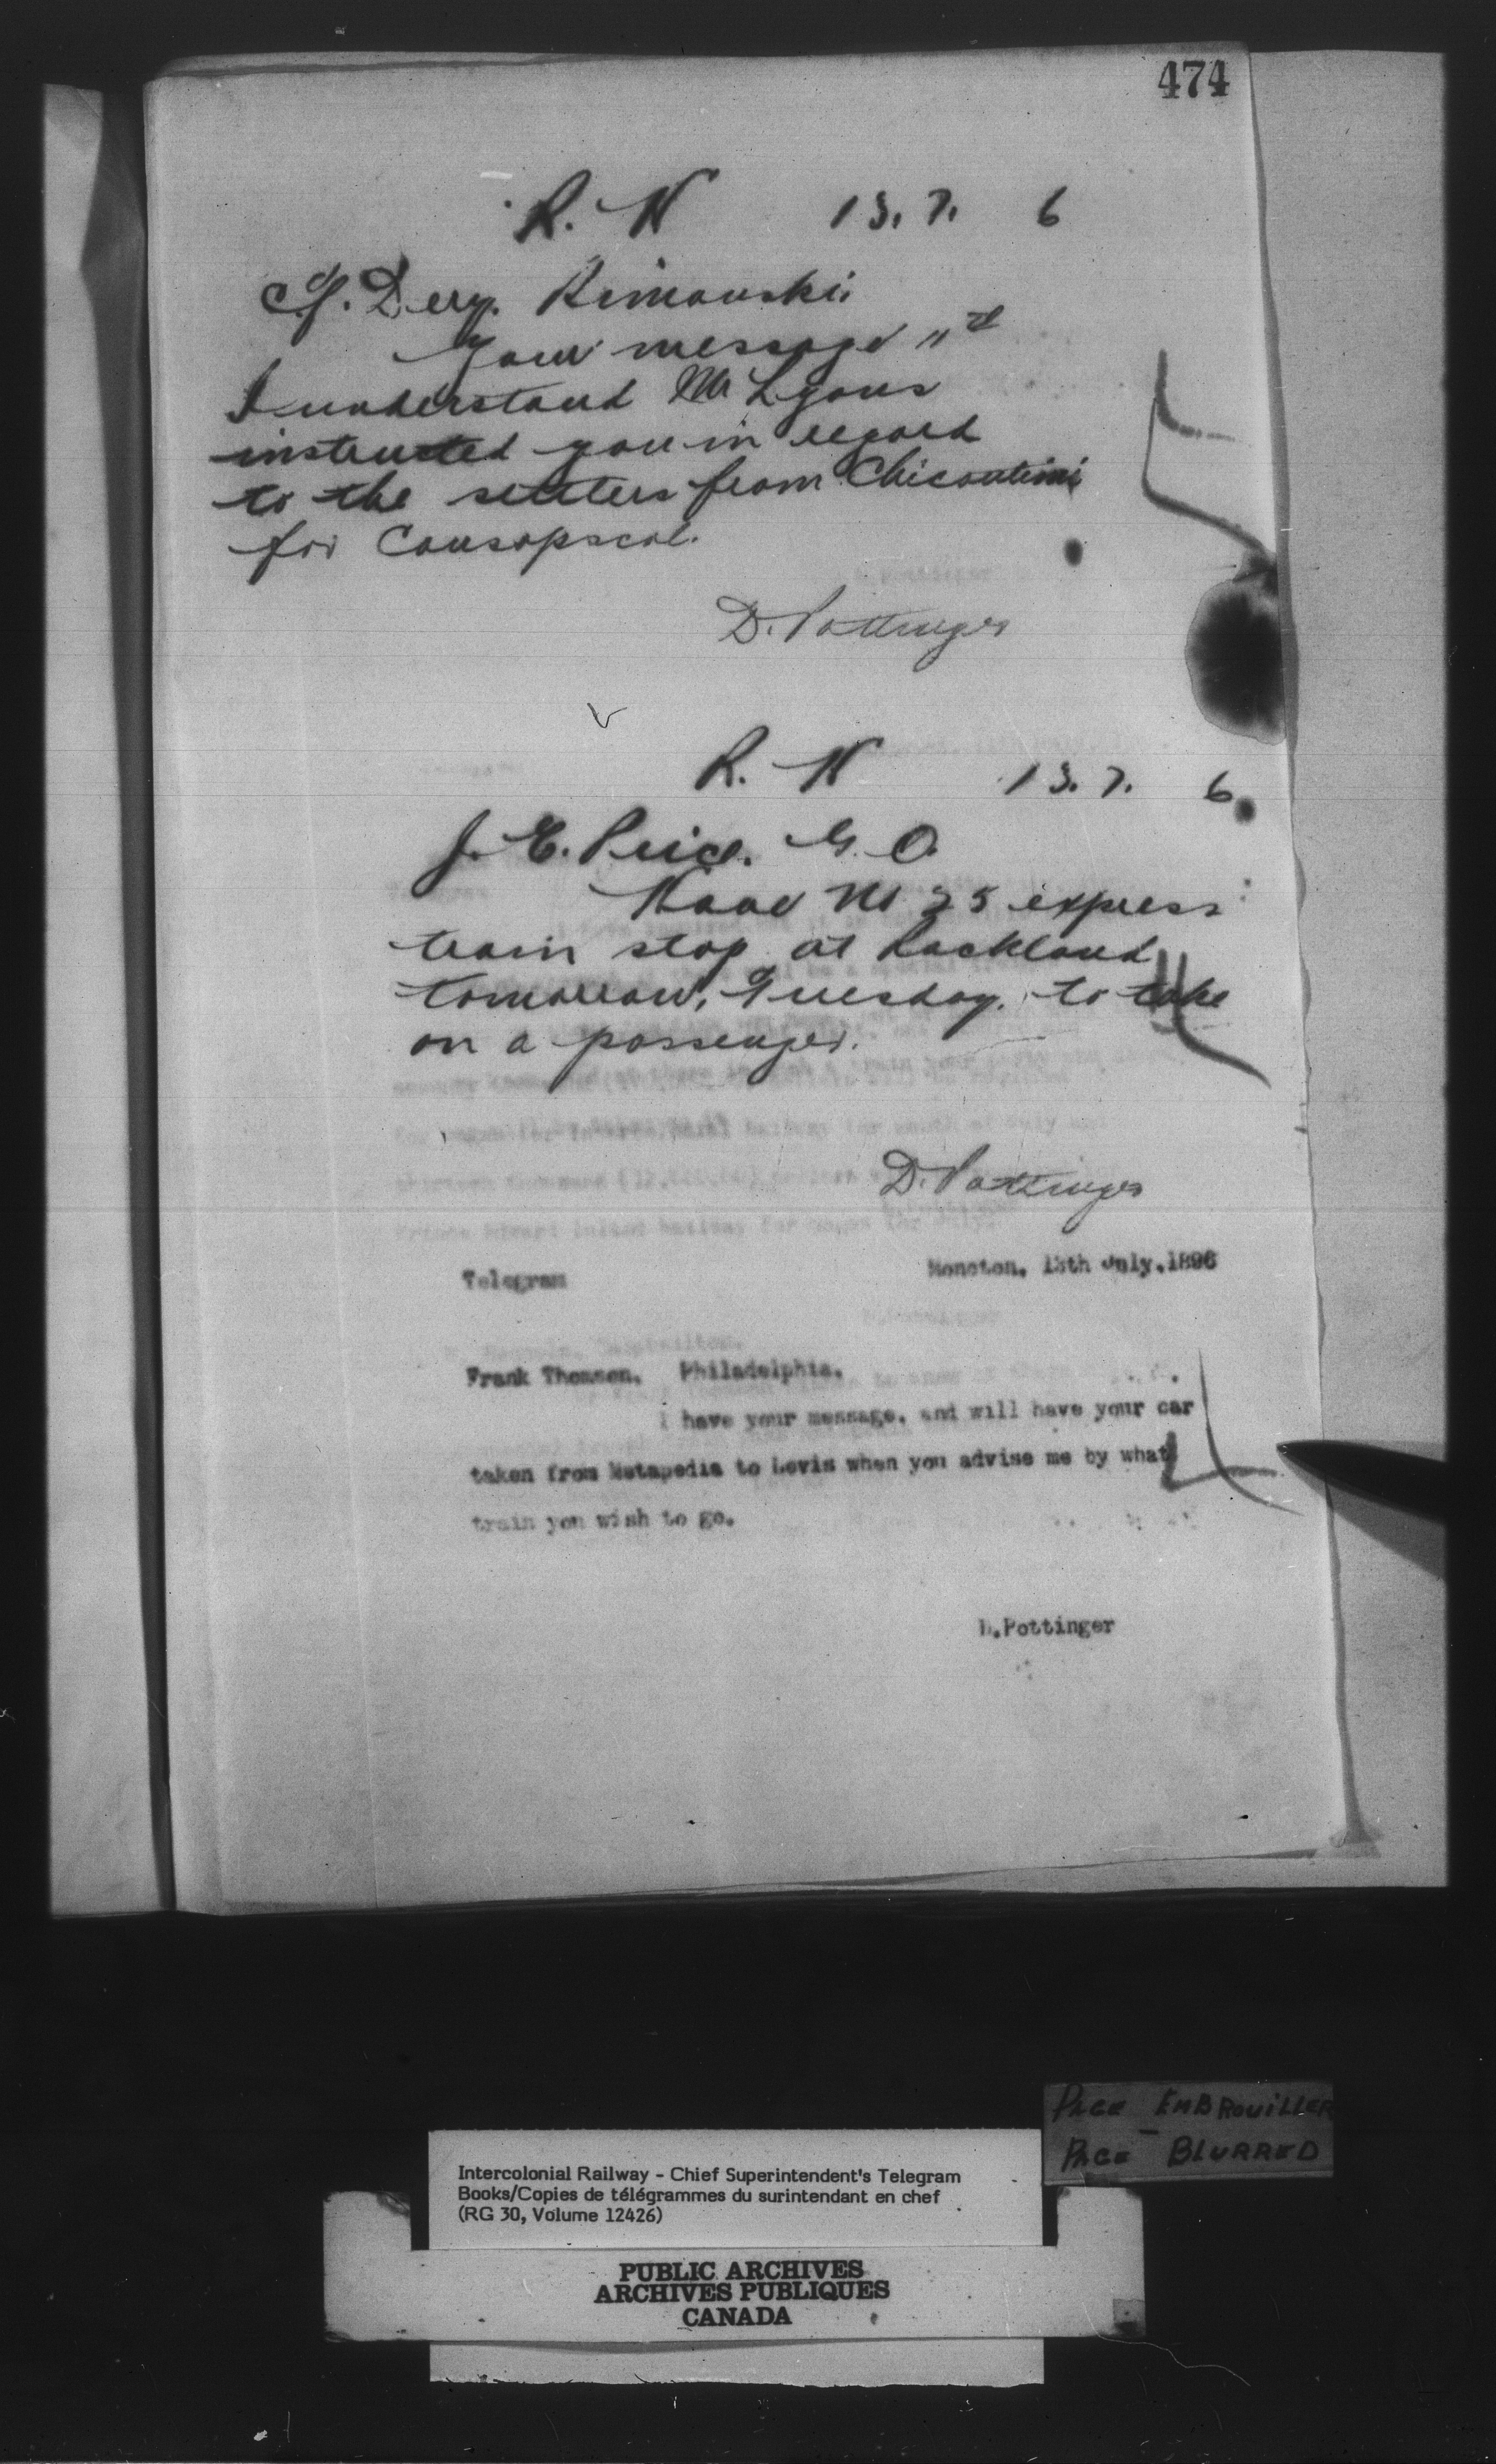 474
R. N 13. 7. 6
Dery. Rimouski.
Your message "
I understand Mr Lyons
instructed you in regard
to the settlers from Chicoutimi
for Causapscal.
D. Pottinger
R. N 13. 7. 6
J. E. Price. G. O.
Have No 35 express
train stop at Rockland
tomorrow, Tuesday. to take
on a passenger.
D. Pottinger
Telegram Moncton, 13th July, 1896
Frank Thomson, Philadelphia.
I have your message, and will have your car
taken from Metapedia to Levis when you advise me by what
train you wish to go.
D. Pottinger
PAGE EMBROUILLER
PAGE BLURRED
Intercolonial Railway - Chief Superintendent's Telegram
Books/Copies de télégrammes du surintendant en chef
(RG 30, Volume 12426)
PUBLIC ARCHIVES
ARCHIVES PUBLIQUES
CANADA